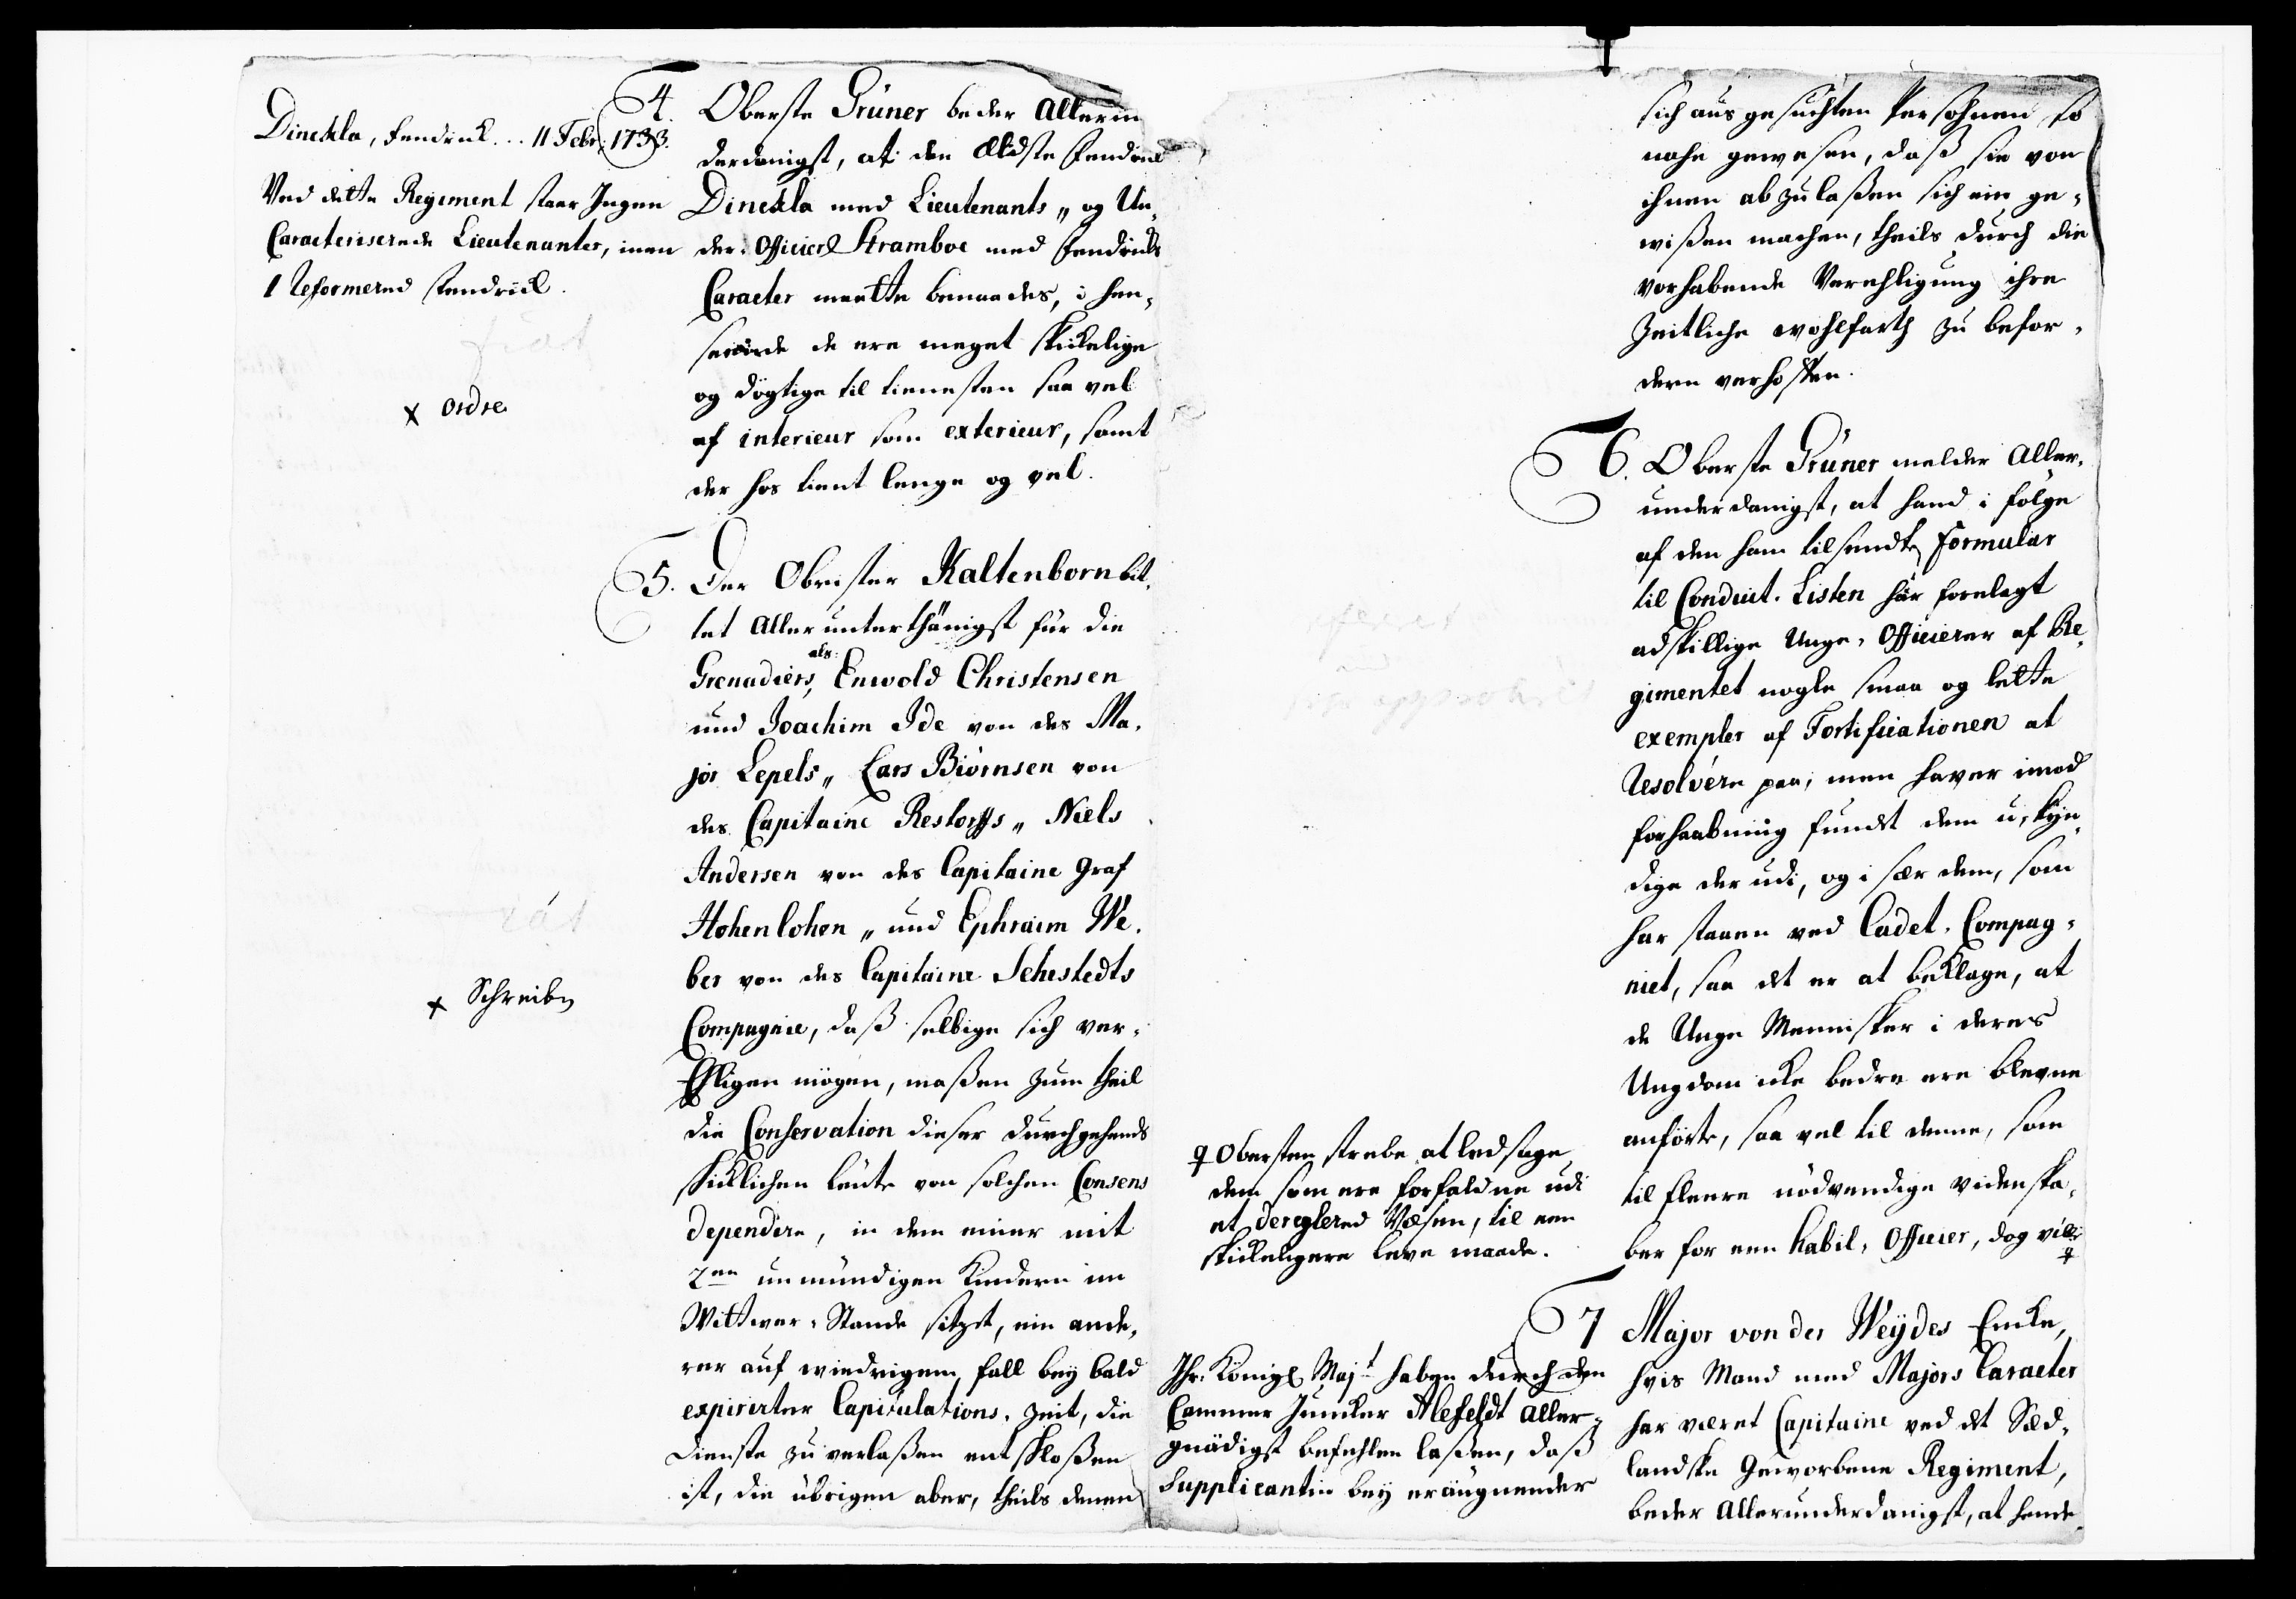 Dinckla, Fendrick... 11 Febr: 1733.
Ved dette Regiment staar Ingen
Caracteriserede Lieutenanter, men
1 Reformered Fendrick.
x ordre
x Schreiben
4. Oberste Grüner beder Allerun
derdanigst, at den Ældste Fendrick
Dinckla med Lieutenants „ og Un„
der. Officier Stramboe med Fendricks
Caracter maatte benaades, i hen„
seende de ere meget skickelige
og dögtige til tienesten saa vel
af interieur som exterieur, samt
der hos tient lenge og vel.
5. Der Obrister Kaltenborn bit„
tet Allerunterthänigst für die
als:
Grenadiers, Enwold Christensen
und Joachim Ide von des Ma„
jor Lepels „ Lars Biörnsen von
des Capitaine Restorffs „ Niels
Andersen von des Capitaine Graf
Hohenlohen „ und Ephraim We„
ber von des Capitaine Sehestedts
Compagnie, daß selbige sich ver„
Ehligen mögen, maßen zum theil
die Conservation dieser durchgehends
schicklichen Leute von solchen Consens
dependire, in dem einer mit
2en unmündigen Kindern im
Wittwer-Stande sitzet, ein ande„
rer auf wiedrigem fall bey bald
expirirter Capitulations. zeit, die
Dienste zu verlaßen entschloßen
ist, die übrigen aber, theils denen
sich ausgesuchten Persohnen so
nahe gewesen, daß sie von
ihnen abzulaßen sich ein ge„
wißen machen, theils durch die
vorhabende Verehligung ihre
Zeitliche wohlfarth zu befor„
dern verhoffen.
6. Oberste Grüner melder Aller„
underdanigst, at hand i fölge
af den ham tilsendte formular
til Conduit. Listen har forelagt
adskillige Unge. Officierer af Re„
gimentet nogle smaa og lette
exempler af Fortificationen at
Resolvere paa, men haver imod
forhaabning fundet dem u„kyn„
dige der udi, og i sær dem, som
har staaen ved Cadet. Compag„
niet, saa det er at beklage, at
de Unge Mennisker i deres
Ungdom icke bedre ere blevne
anförte, saa vel til denne, som
til fleere nödvendige videnska„
ber for een habil. Officier, dog vill
♀
♀ Obersten strebe at ledsage
dem som ere forfaldne udi
et deregleret Væsen, til een
skickeligere leve maade.
7 Major von der Weydes Encke,
hvis Mand med Majors Caracter
har været Capitaine ved det Siæl„
landske Geworbene Regiment,
beder Allerunderdanigst, at hende
Ihr. Königl Majt haben durch den
Cammer Juncker Alefeldt Aller„
gnädigst befehlen laßen, daß
Supplicantin bey eräugnender